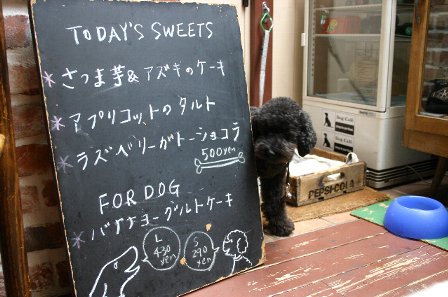 TODAY'S SWEETS
さつま芋&アズキのケーキ
アプリコットのタルト
ラズベリーガトーショコラ
500yen
FOR DOG
バナナヨーグルトケーキ
L
430
yen
S
290
yen
PEPSI-COLA
Dog Cafe